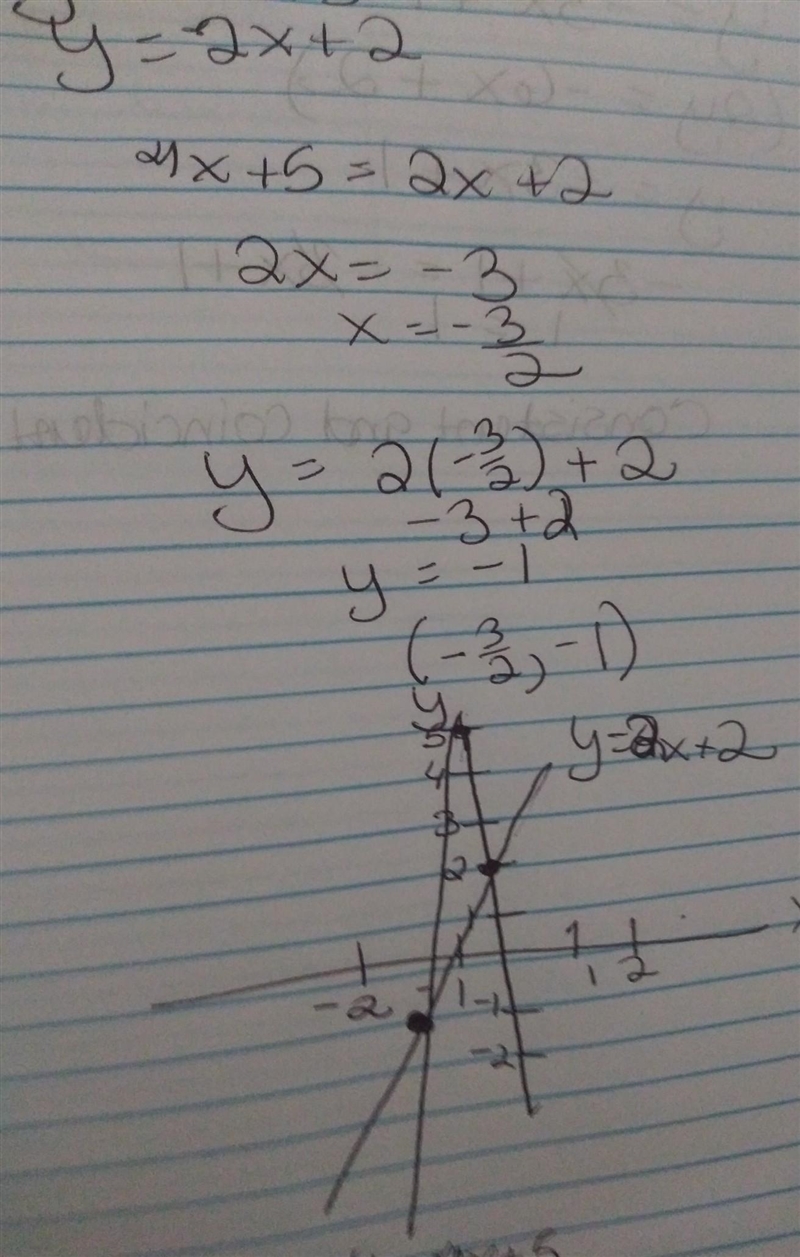 y = 2x + 2
4x + 5 = 2x + 2
2x = -3
x = -3/2
y = 2(-3/2) + 2
-3 + 2
y = -1
(-3/2, -1)
y
5
y = 2x + 2
4
3
2
1
x
-2
1
1
2
-1
-2